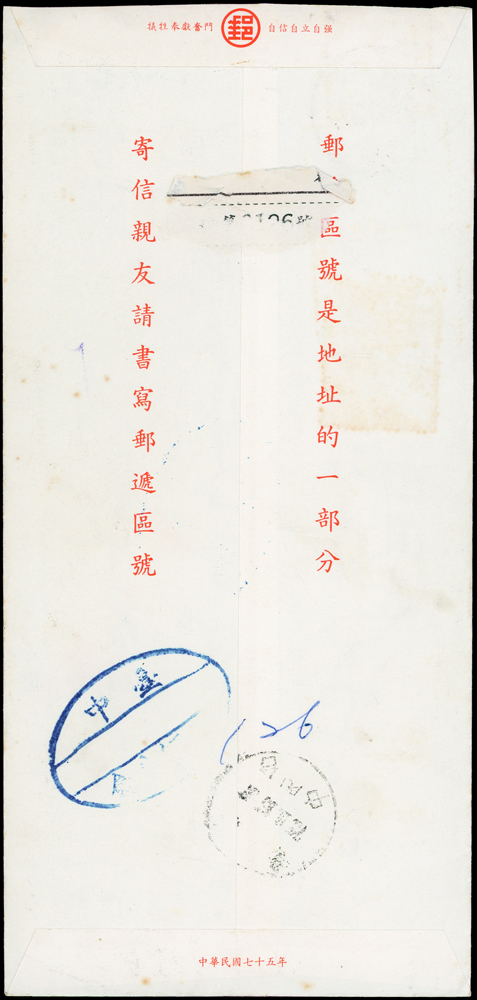 犧牲奉獻奮鬥 郵 自信自立自强
郵區號是地址的一部分
寄信親友請書寫郵遞區號
臺中
126
中華民國七十五年